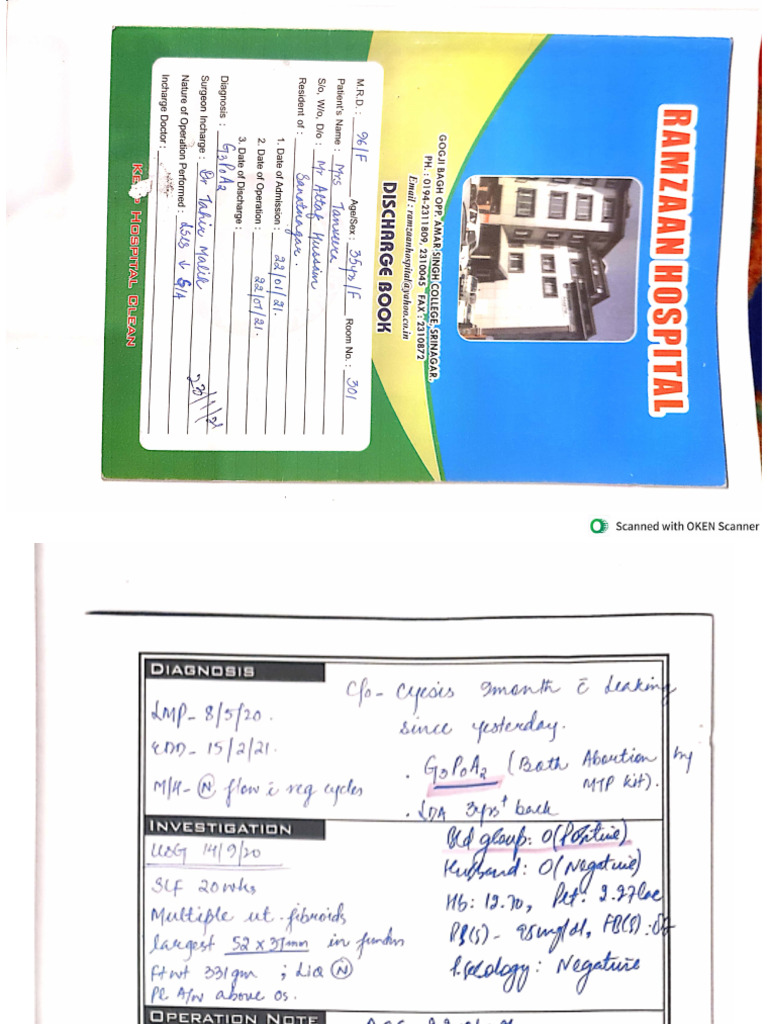 RAMZAAN HOSPITAL
GOGJI BAGH OPP. AMAR SINGH COLLEGE, SRINAGAR.
PH. : 0194-2311809, 2310045 FAX : 2310872
Email : ramzaanhospital@yahoo.co.in
DISCHARGE BOOK
M.R.D. : 96/F Age/Sex : 35yrs/F Room No. : 301
Patient's Name : Mrs Tanveera
S/o, W/o, D/o : Mr Altaf Hussain
Resident of : Sanatnagar.
1. Date of Admission : 22/01/21.
2. Date of Operation : 22/01/21.
3. Date of Discharge :
Diagnosis : G3P0A2
Surgeon Incharge : Dr Tahir Malik
23/1/21
Nature of Operation Performed : LSCS ↓ G/A
Incharge Doctor :
KEEP HOSPITAL CLEAN
Scanned with OKEN Scanner
DIAGNOSIS
C/o - Cyesis 9month c̄ leaking
since yesterday.
LMP- 8/5/20.
EDD- 15/2/21.
M/H- (N) flow c̄ reg cycles
. G3P0A2 (Both Abortion by
MTP kit).
. LDA 3yrs+ back
INVESTIGATION
USG 14/9/20
SLF 20wks
Multiple ut. fibroids
largest 52 x 37mm in fundus
Ft wt 331gm ; Liq (N)
Pl A/w above os.
Bld group: O(Positive)
Husband: O(Negative)
Hb: 12.70, Plt: 2.27lac
B(S)- 95mg/dl,
Negative
OPERATION NOTE